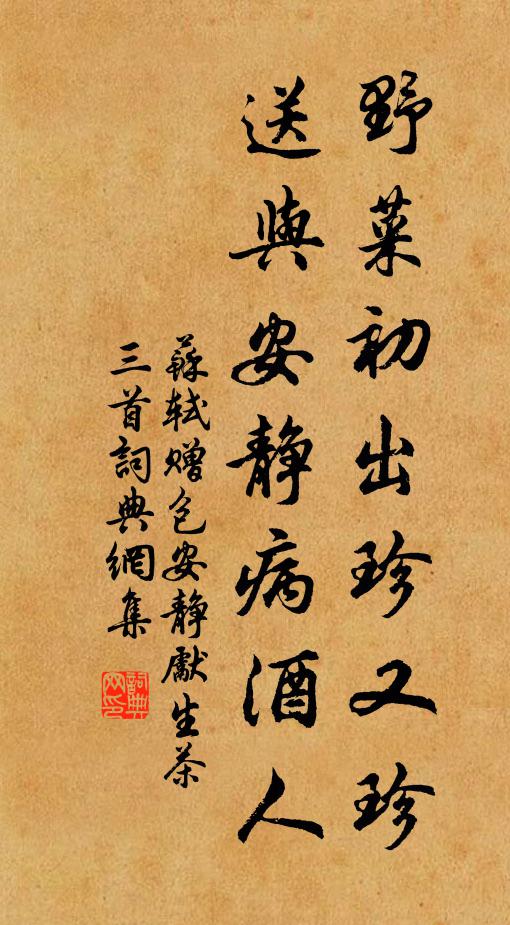 野菜初出珍又珍
送與安靜病酒人
蘇軾贈包安靜獻生茶
三首詞典網集
詞典網印